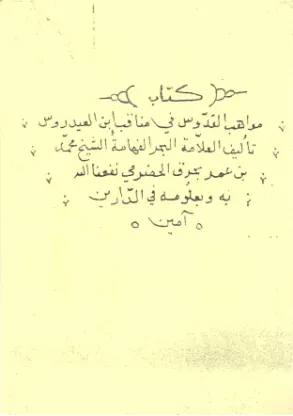 كتاب
مواهب القدوس في مناقب ابن العيدروس
تأليف العلامة البحر الفهامة الشيخ محمد
بن عمر بحرق الحضرمي نفعنا الله
به وبعلومه في الدارين
آمين